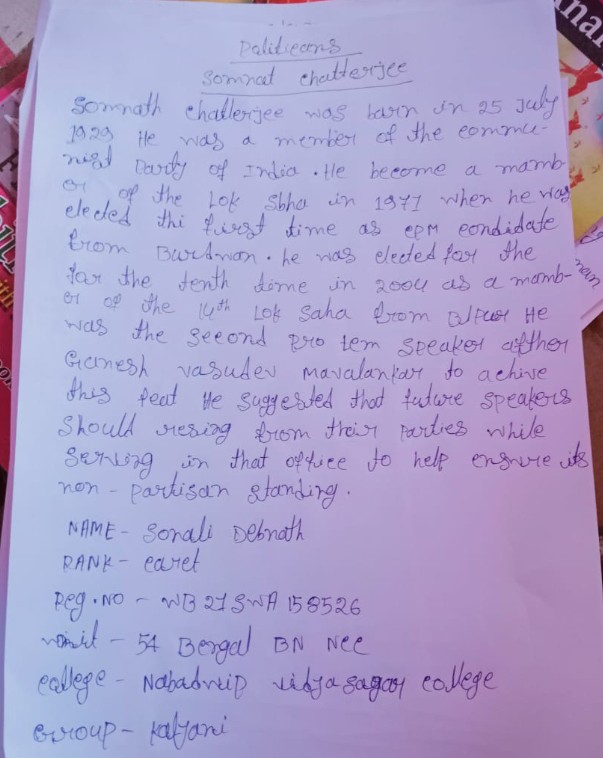 - 1 -
Politiecons
Somnat chatterjee
Somnath chatterjee was barn in 25 July
1929 He was a member of the commu-
nist Party of India. He become a mamb-
er of the Lok Sbha in 1971 when he was
elected thi first time as CPM condidate
from Burdwan. he was elected for the
for the tenth dime in 2004 as a mamb-
er of the 14th Lok Saha from Blpur He
was the second pro tem speaker afther
Ganesh vasudev mavalankar to achive
this feat He suggested that future speakers
should resing from their parties while
serving in that office to help ensure its
non - partisan standing.
NAME - Sonali Debnath
RANK - caret
Reg. NO - WB21SWA158526
unit - 54 Bengal BN NCC
college - Nabadwip vidyasagar college
Group - Kalyani
man